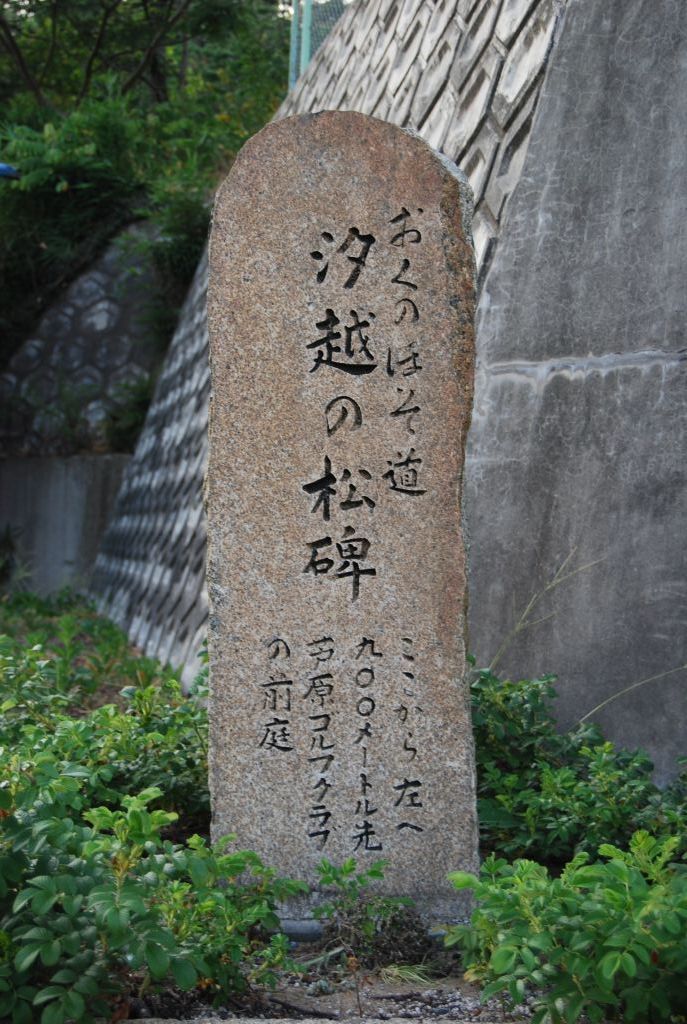 おくのほそ道
汐越の松碑
ここから左へ
九〇〇メートル先
芦原ゴルフクラブ
の前庭